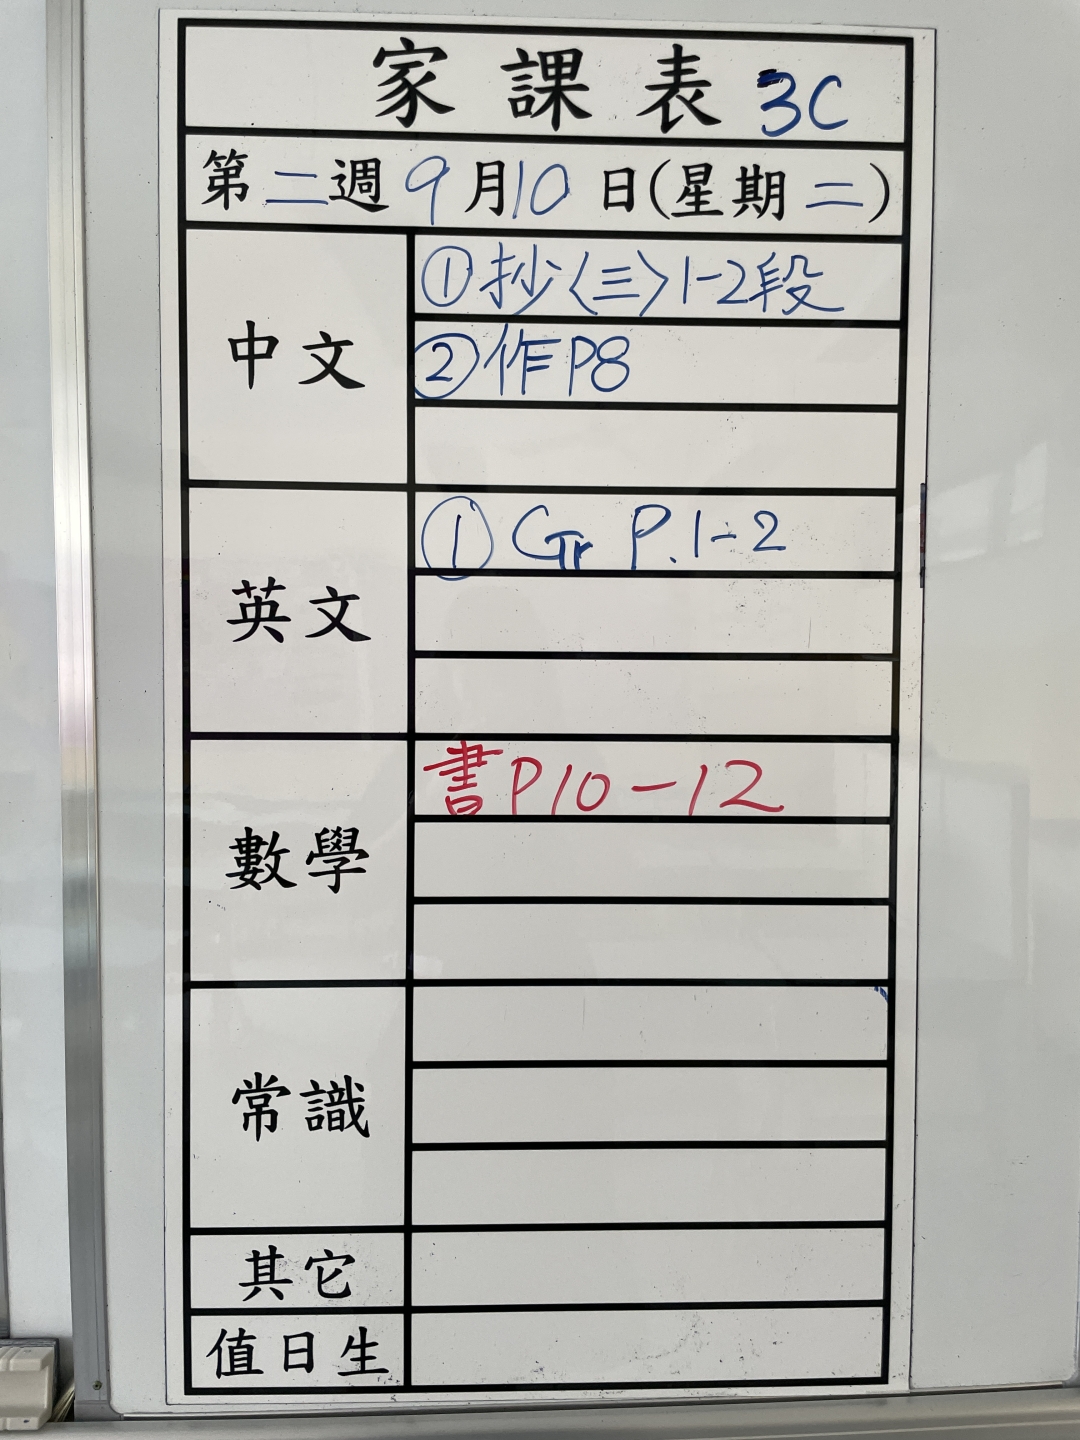 家課表 3C
第二週 9月10日(星期二)
中文
①抄〈三〉1-2段
②作P8
英文
① Gr P.1-2
數學
書P10-12
常識
其它
值日生